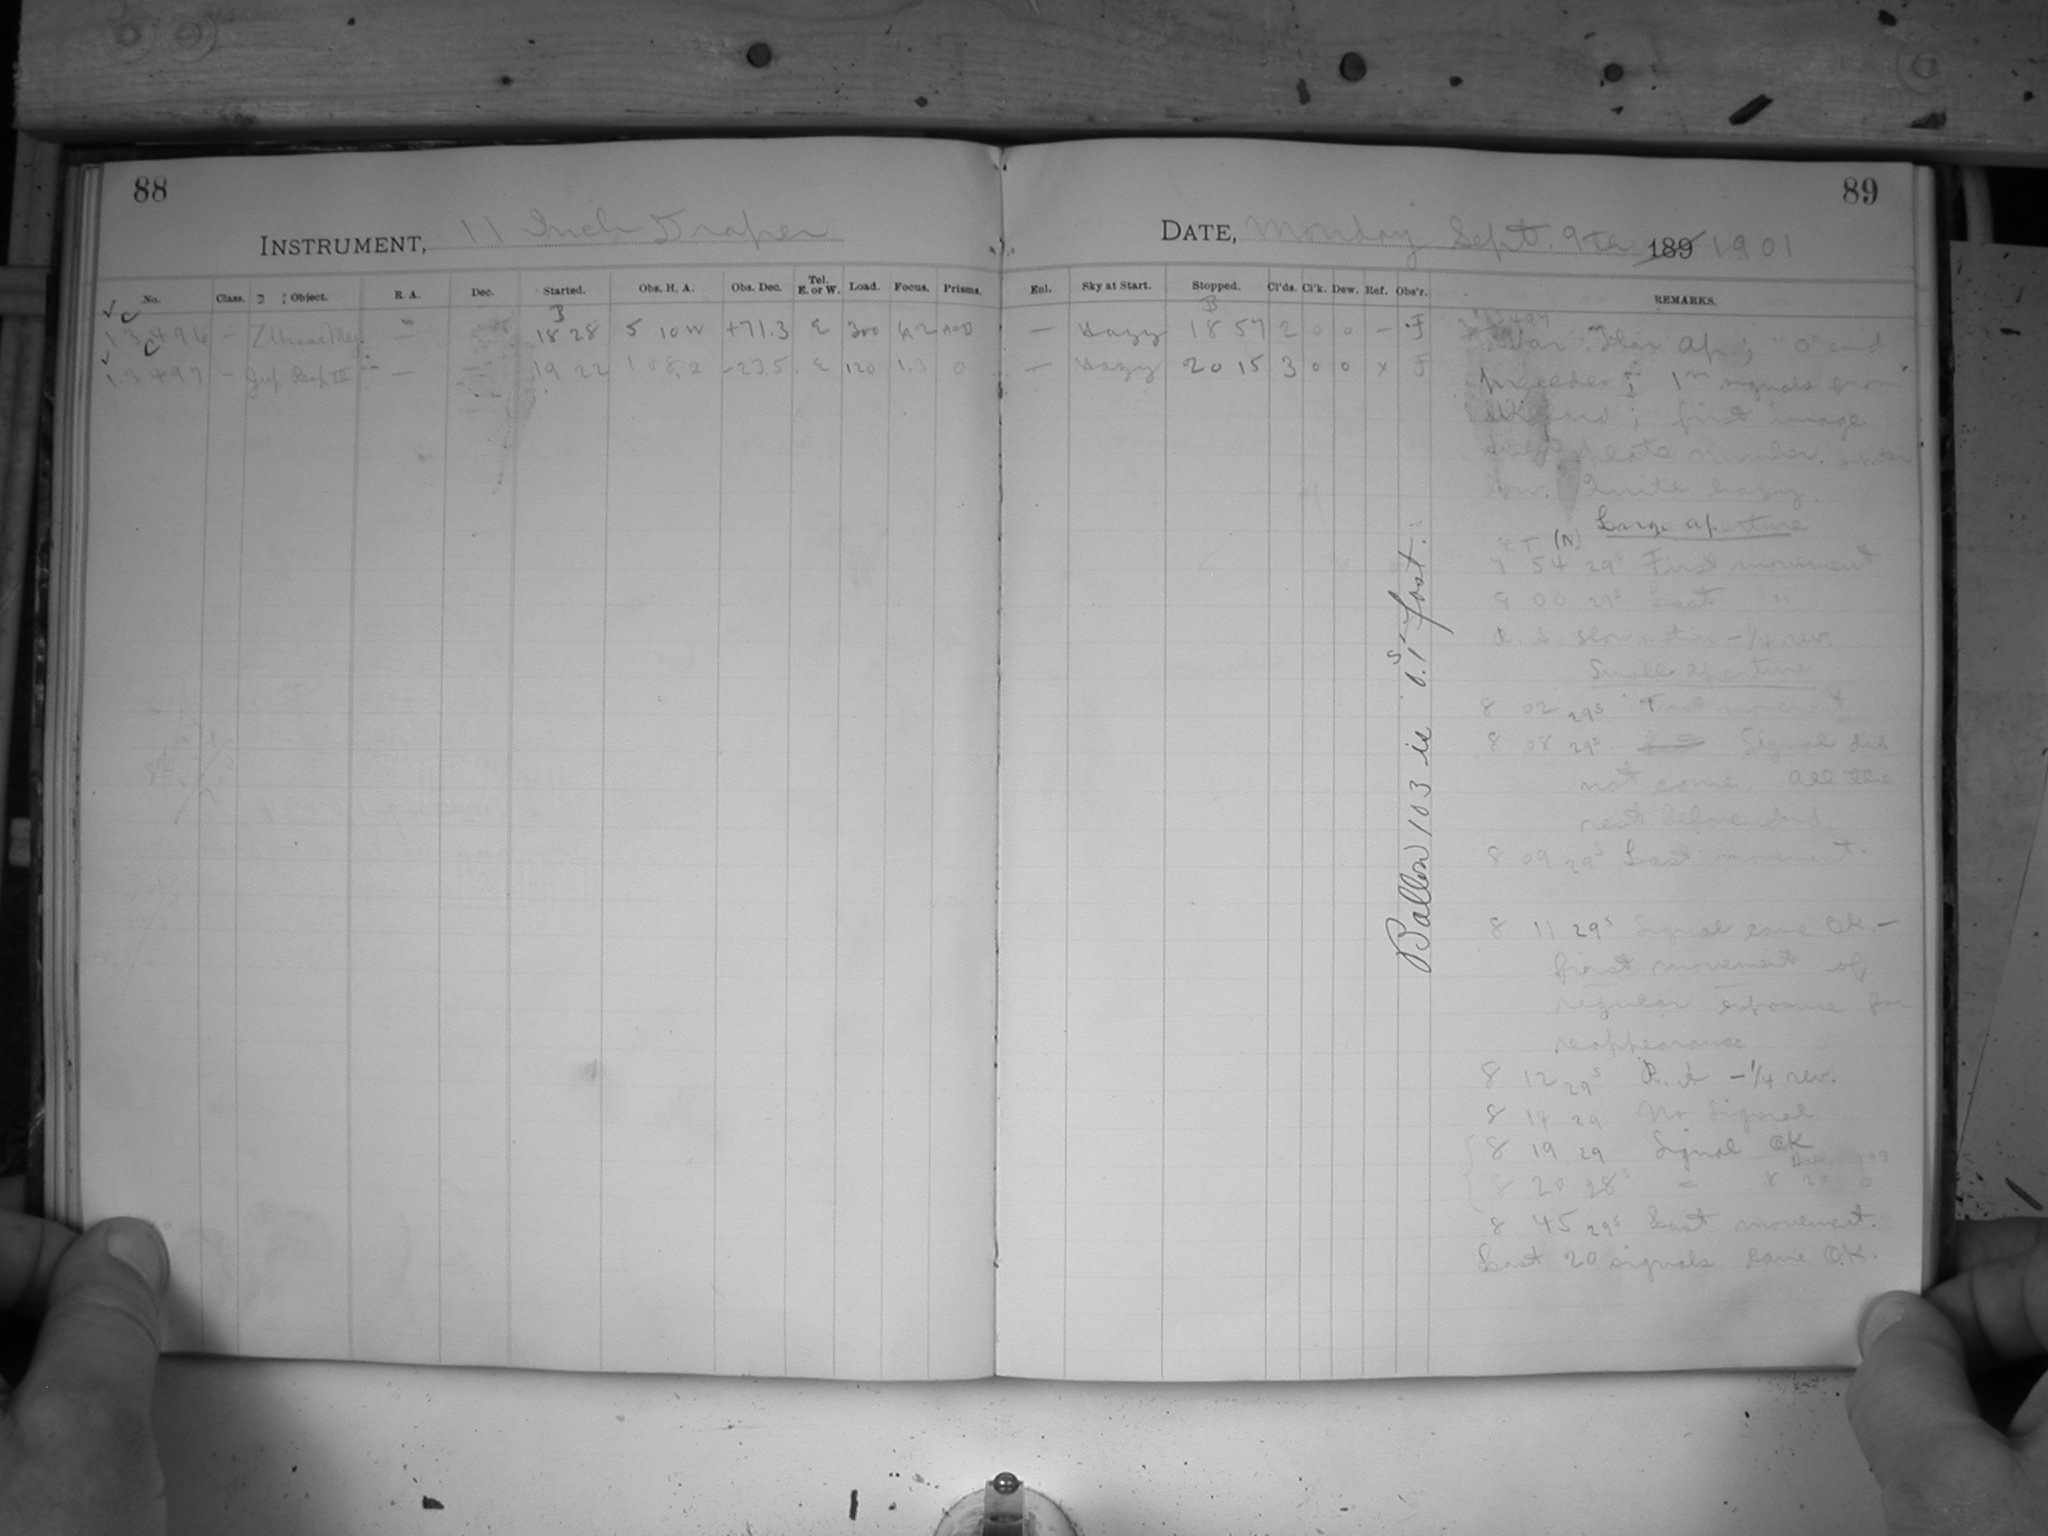 88
INSTRUMENT, 11 Inch Draper
No. Class. Object. R. A. Dec. Started. Obs. H. A. Obs. Dec. Tel. E. or W. Load. Focus. Prisms.
B
13496 – Z Ursae Maj. – 18 28 5 10 W +71.3 E 300
13497 – Jup. – 19 22 -23.5 E 120 1.3 0
89
DATE, Monday Sept. 9th 189 1901
Enl. Sky at Start. Stopped. Cl'ds. Cl'k. Dew. Ref. Obs'r. REMARKS.
B
– Hazy 18 57 2 0 0 – F
– Hazy 20 15 3 0 0 x F
13497
first image
plate number.
low. Quite hazy.
Large aperture
(N)
7 54 29s First movement
8 00 29s Last "
R. A. slow motion – 1/4 rev.
Small aperture
8 02 29s First movement
8 08 29s Signal did
not come. All the
rest before did
8 09 29s Last movement.
8 11 29s Signal came OK. –
first movement of
regular exposure for
reappearance
8 12 29s R. A – 1/4 rev.
8 14 29 No Signal
8 19 29 Signal OK
8 20 28s
8 45 29s Last movement.
Last 20 signals came OK.
Ballou 103 is 0.1s fast.